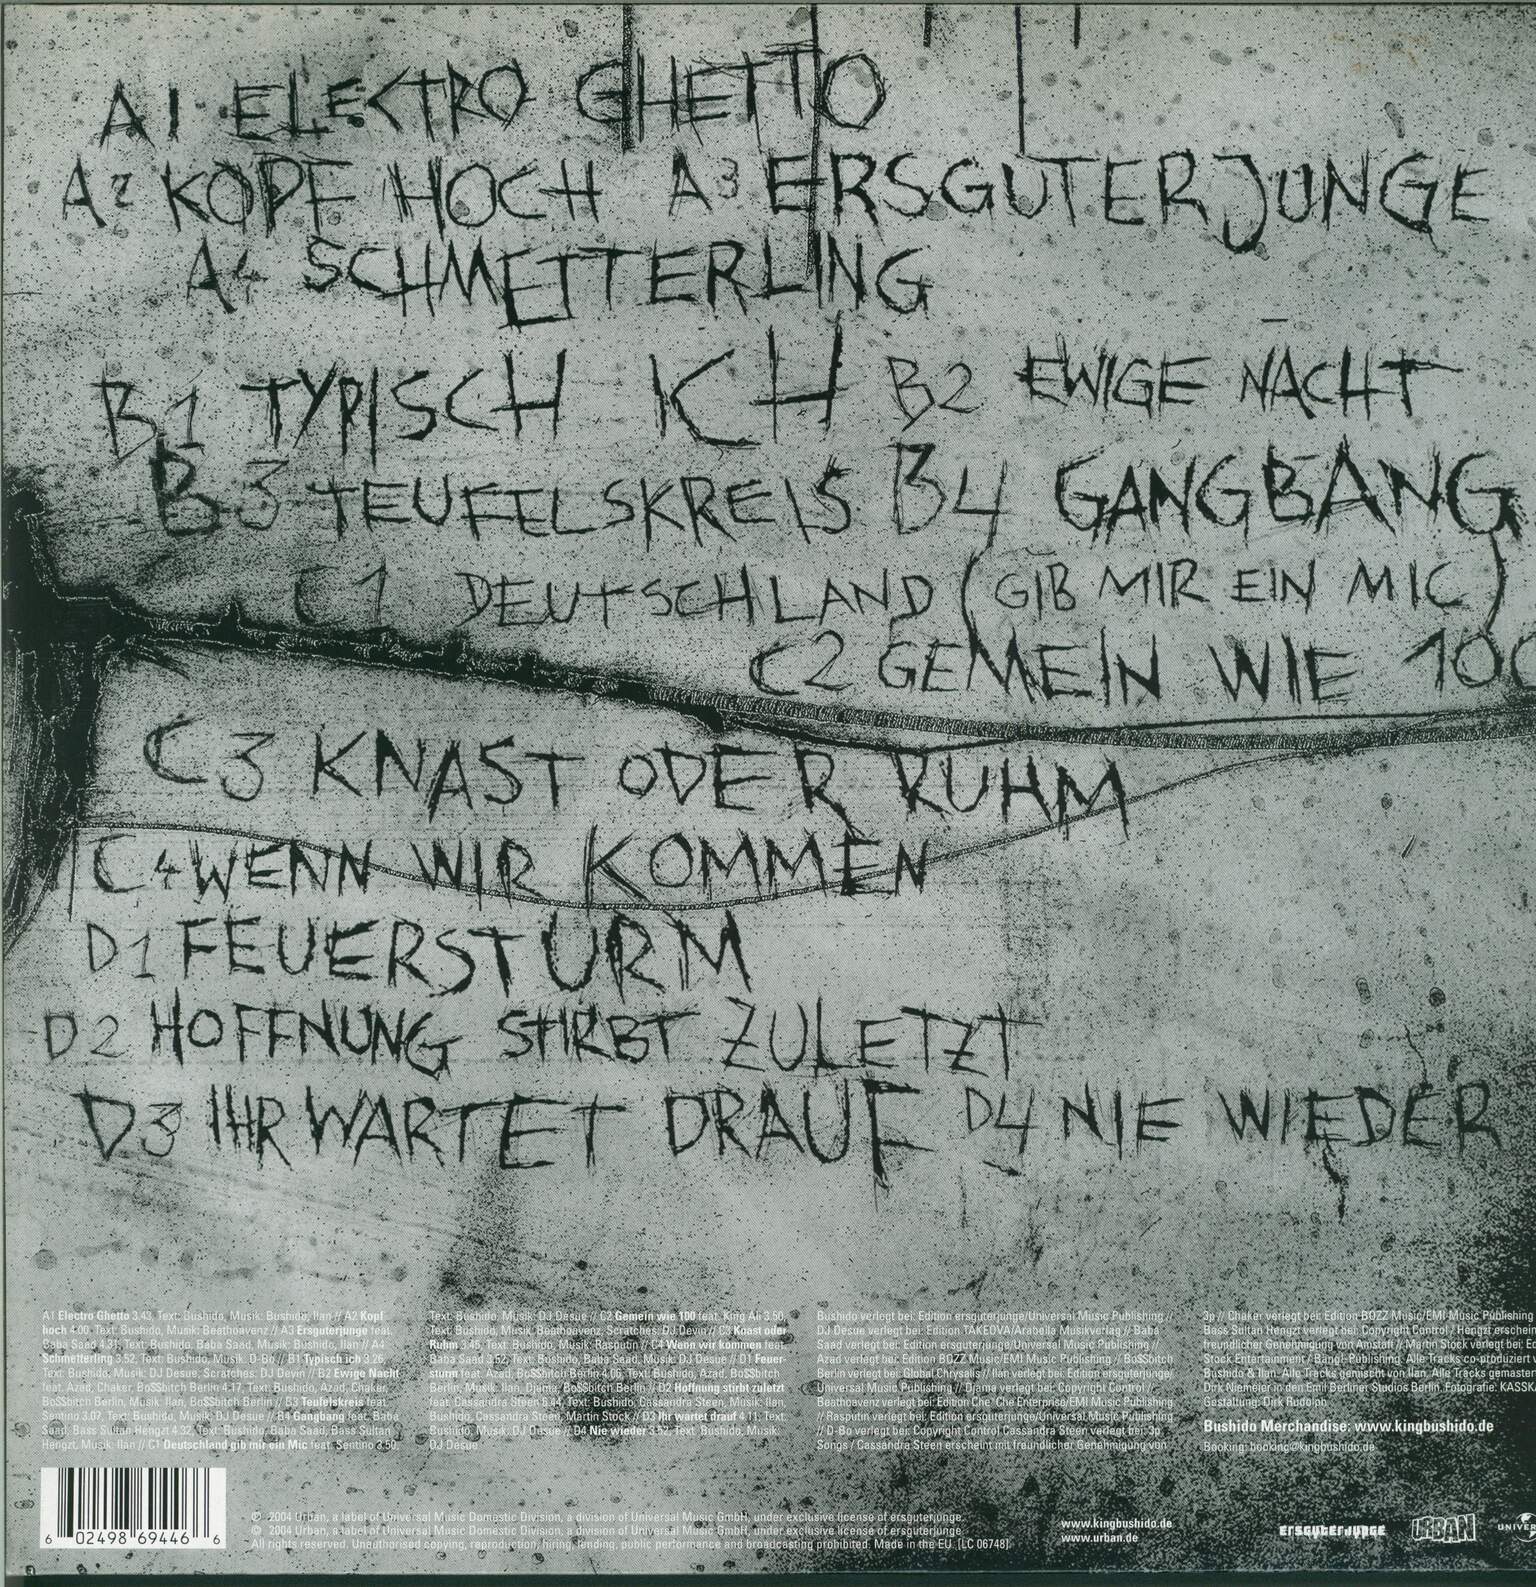 A1 ELECTRO GHETTO
A2 KOPF HOCH A3 ERSGUTERJUNGE
A4 SCHMETTERLING
B1 TYPISCH ICH B2 EWIGE NACHT
B3 TEUFELSKREIS B4 GANGBANG
C1 DEUTSCHLAND (GIB MIR EIN MIC)
C2 GEMEIN WIE 100
C3 KNAST ODER RUHM
C4 WENN WIR KOMMEN
D1 FEUERSTURM
D2 HOFFNUNG STIRBT ZULETZT
D3 IHR WARTET DRAUF D4 NIE WIEDER
A1 Electro Ghetto 3.43, Text: Bushido, Musik: Bushido, Ilan // A2 Kopf
hoch 4.00, Text: Bushido, Musik: Beathoavenz // A3 Ersguterjunge feat.
Baba Saad 4.31, Text: Bushido, Baba Saad, Musik: Bushido, Ilan // A4
Schmetterling 3.52, Text: Bushido, Musik: D-Bo // B1 Typisch ich 3.26,
Text: Bushido, Musik: DJ Desue, Scratches: DJ Devin // B2 Ewige Nacht
feat. Azad, Chaker, Bo$$bitch Berlin 4.17, Text: Bushido, Azad, Chaker,
Bo$$bitch Berlin, Musik: Ilan, Bo$$bitch Berlin // B3 Teufelskreis feat.
Sentino 3.07, Text: Bushido, Musik: DJ Desue // B4 Gangbang feat. Baba
Saad, Bass Sultan Hengzt 4.32, Text: Bushido, Baba Saad, Bass Sultan
Hengzt, Musik: Ilan // C1 Deutschland gib mir ein Mic feat. Sentino 3.50,
Text: Bushido, Musik: DJ Desue // C2 Gemein wie 100 feat. King Ali 3.50,
Text: Bushido, Musik: Beathoavenz, Scratches: DJ Devin // C3 Knast oder
Ruhm 3.45, Text: Bushido, Musik: Rasputin // C4 Wenn wir kommen feat.
Baba Saad 3.52, Text: Bushido, Baba Saad, Musik: DJ Desue // D1 Feuer-
sturm feat. Azad, Bo$$bitch Berlin 4.06, Text: Bushido, Azad, Bo$$bitch
Berlin, Musik: Ilan, Djama, Bo$$bitch Berlin // D2 Hoffnung stirbt zuletzt
feat. Cassandra Steen 5.44, Text: Bushido, Cassandra Steen, Musik: Ilan,
Bushido, Cassandra Steen, Martin Stock // D3 Ihr wartet drauf 4.11, Text:
Bushido, Musik: DJ Desue // D4 Nie wieder 3.52, Text: Bushido, Musik:
DJ Desue
Bushido verlegt bei: Edition ersguterjunge/Universal Music Publishing //
DJ Desue verlegt bei: Edition TAKEOVA/Arabella Musikverlag // Baba
Saad verlegt bei: Edition ersguterjunge/Universal Music Publishing //
Azad verlegt bei: Edition BOZZ Music/EMI Music Publishing // Bo$$bitch
Berlin verlegt bei: Global Chrysalis // Ilan verlegt bei: Edition ersguterjunge/
Universal Music Publishing // Djama verlegt bei: Copyright Control //
Beathoavenz verlegt bei: Edition Che' Che Enterprise/EMI Music Publishing
// Rasputin verlegt bei: Edition ersguterjunge/Universal Music Publishing
// D-Bo verlegt bei: Copyright Control Cassandra Steen verlegt bei: 3p
Songs / Cassandra Steen erscheint mit freundlicher Genehmigung von
3p // Chaker verlegt bei: Edition BOZZ Music/EMI Music Publishing
Bass Sultan Hengzt verlegt bei: Copyright Control / Hengzt erscheint
freundlicher Genehmigung von Amstaff // Martin Stock verlegt bei: Ed
Stock Entertainment / Bangl-Publishing. Alle Tracks co-produziert v
Bushido & Ilan. Alle Tracks gemischt von Ilan. Alle Tracks gemastert
Dirk Niemeier in den Emil Berliner Studios Berlin. Fotografie: KASSK
Gestaltung: Dirk Rudolph
Bushido Merchandise: www.kingbushido.de
Booking: booking@kingbushido.de
6 02498 69446 6
℗ 2004 Urban, a label of Universal Music Domestic Division, a division of Universal Music GmbH, under exclusive license of ersguterjunge.
© 2004 Urban, a label of Universal Music Domestic Division, a division of Universal Music GmbH, under exclusive license of ersguterjunge
All rights reserved. Unauthorised copying, reproduction, hiring, lending, public performance and broadcasting prohibited. Made in the EU. [LC 06748]
www.kingbushido.de
www.urban.de
ersguterjunge URBAN UNIVERS